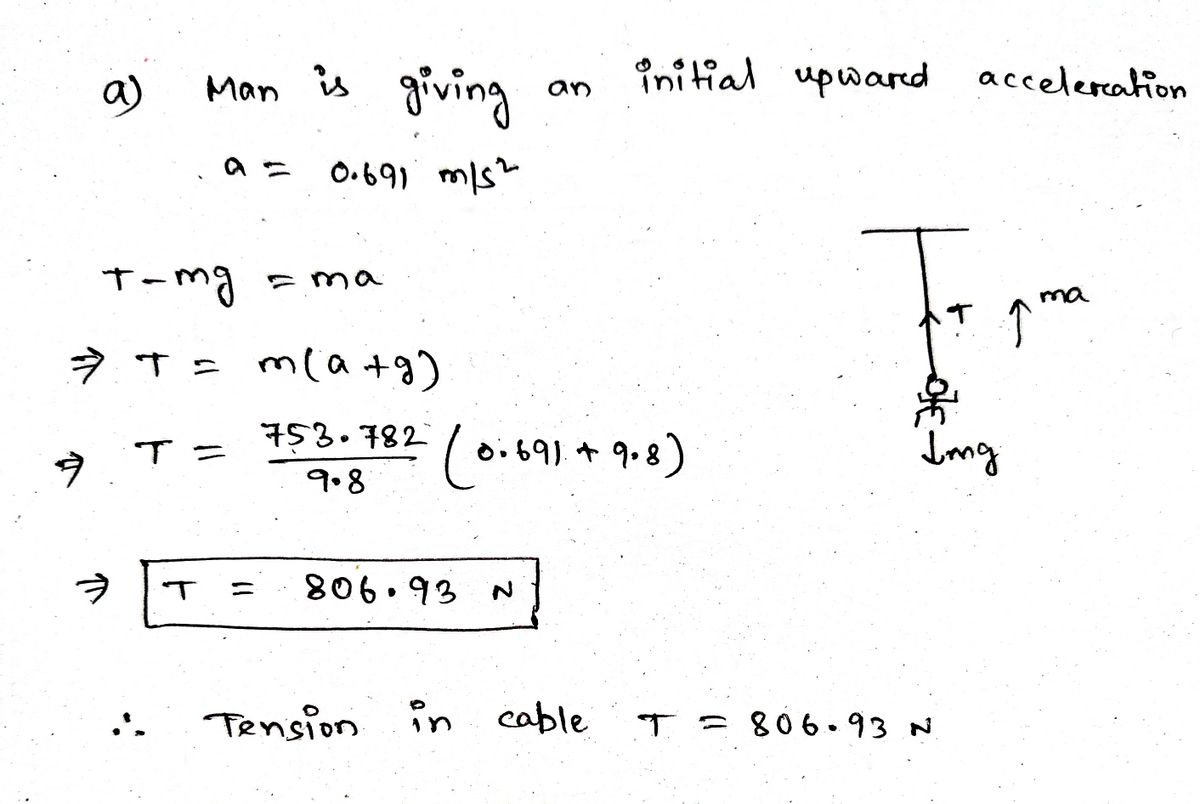 a) Man is giving an initial upward acceleration
a = 0.691 m/s²
T - mg = ma
⇒ T = m(a + g)
⇒ T = 753.782/9.8 (0.691 + 9.8)
⇒ T = 806.93 N
∴ Tension in cable T = 806.93 N
T ↑ ma
↓mg